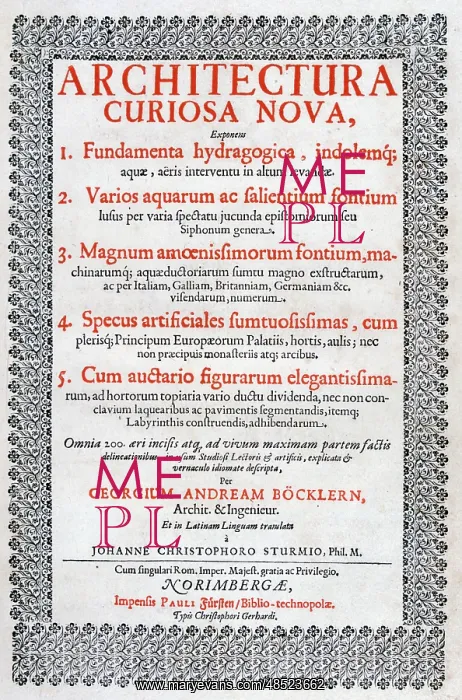 ARCHITECTURA
CURIOSA NOVA,
Exponens
1. Fundamenta hydragogica, indolemq́;
aquæ, aëris interventu in altum levandæ.
2. Varios aquarum ac salientium fontium
lusus per varia spectatu jucunda epistomiorum seu
Siphonum genera.
3. Magnum amœnissimorum fontium, ma-
chinarumq́; aquæductoriarum sumtu magno exstructarum,
ac per Italiam, Galliam, Britanniam, Germaniam &c.
visendarum, numerum.
4. Specus artificiales sumtuosissimas, cum
plerisq́; Principum Europæorum Palatiis, hortis, aulis; nec
non præcipuis monasteriis atq; arcibus.
5. Cum auctario figurarum elegantissima-
rum, ad hortorum topiaria vario ductu dividenda, nec non con-
clavium laquearibus ac pavimentis segmentandis, itemq;
Labyrinthis construendis, adhibendarum.
Omnia 200. æri incisis atq, ad vivum maximam partem factis
delineationibus in usum Studiosi Lectoris & artificis, explicata &
vernaculo idiomate descripta,
Per
GEORGIUM ANDREAM BÖCKLERN,
Archit. & Ingenieur.
Et in Latinam Linguam translata
à
JOHANNE CHRISTOPHORO STURMIO, Phil. M.
Cum singulari Rom. Imper. Majest. gratia ac Privilegio.
NORIMBERGÆ,
Impensis PAULI Fürsten/Biblio-technopolæ.
Typis Christophori Gerhardi.
ME
PL
ME
PL
www.maryevans.com/48523662